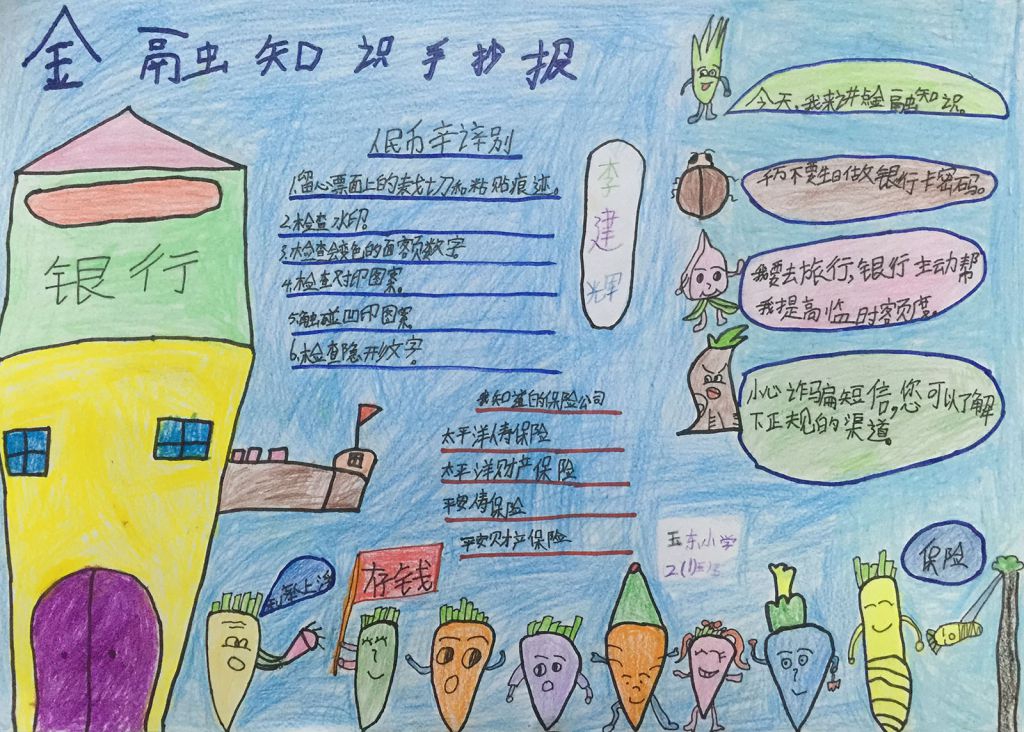 金融知识手抄报
人民币辛谛别
1.留心票面上的裁切和粘贴痕迹。
2.检查水印。
3.检查会变色的面额数字
4.检查对印图案。
5.触碰凹印图案
6.检查隐形文字。
李建辉
银行
我知道的保险公司
太平洋人寿保险
太平洋财产保险
平安人寿保险
平安财产保险
今天,我来讲点金融知识。
千万不要生日做银行卡密码。
我要去旅行,银行主动帮
我提高临时额度。
小心诈骗短信,您可以了解
下正规的渠道。
玉东小学
2(1)班
存钱
保险